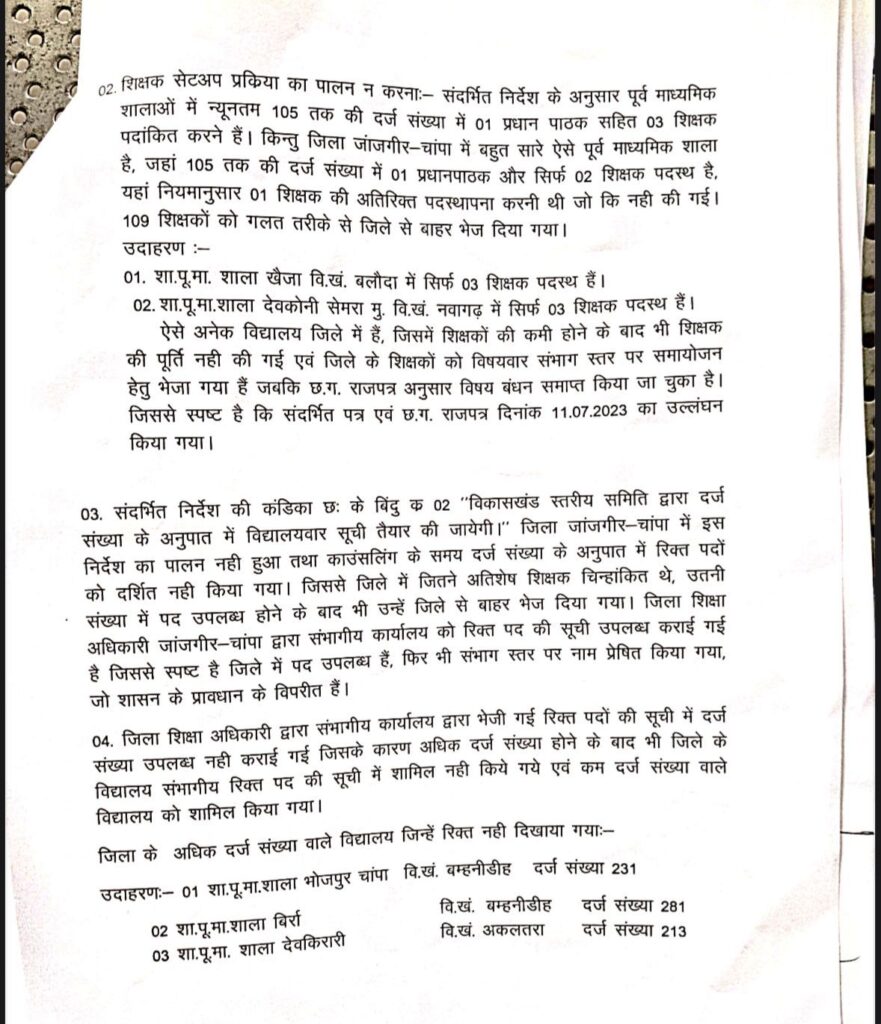 02. शिक्षक सेटअप प्रकिया का पालन न करनाः– संदर्भित निर्देश के अनुसार पूर्व माध्यमिक
शालाओं में न्यूनतम 105 तक की दर्ज संख्या में 01 प्रधान पाठक सहित 03 शिक्षक
पदांकित करने हैं। किन्तु जिला जांजगीर–चांपा में बहुत सारे ऐसे पूर्व माध्यमिक शाला
है, जहां 105 तक की दर्ज संख्या में 01 प्रधानपाठक और सिर्फ 02 शिक्षक पदस्थ है,
यहां नियमानुसार 01 शिक्षक की अतिरिक्त पदस्थापना करनी थी जो कि नही की गई।
109 शिक्षकों को गलत तरीके से जिले से बाहर भेज दिया गया।
उदाहरण :–
01. शा.पू.मा. शाला खैजा वि.खं. बलौदा में सिर्फ 03 शिक्षक पदस्थ हैं।
02. शा.पू.मा.शाला देवकोनी सेमरा मु. वि.खं. नवागढ़ में सिर्फ 03 शिक्षक पदस्थ हैं।
ऐसे अनेक विद्यालय जिले में हैं, जिसमें शिक्षकों की कमी होने के बाद भी शिक्षक
की पूर्ति नही की गई एवं जिले के शिक्षकों को विषयवार संभाग स्तर पर समायोजन
हेतु भेजा गया हैं जबकि छ.ग. राजपत्र अनुसार विषय बंधन समाप्त किया जा चुका है।
जिससे स्पष्ट है कि संदर्भित पत्र एवं छ.ग. राजपत्र दिनांक 11.07.2023 का उल्लंघन
किया गया।
03. संदर्भित निर्देश की कंडिका छः के बिंदु क 02 "विकासखंड स्तरीय समिति द्वारा दर्ज
संख्या के अनुपात में विद्यालयवार सूची तैयार की जायेगी।" जिला जांजगीर–चांपा में इस
निर्देश का पालन नही हुआ तथा काउंसलिंग के समय दर्ज संख्या के अनुपात में रिक्त पदों
को दर्शित नही किया गया। जिससे जिले में जितने अतिशेष शिक्षक चिन्हांकित थे, उतनी
संख्या में पद उपलब्ध होने के बाद भी उन्हें जिले से बाहर भेज दिया गया। जिला शिक्षा
अधिकारी जांजगीर–चांपा द्वारा संभागीय कार्यालय को रिक्त पद की सूची उपलब्ध कराई गई
है जिससे स्पष्ट है जिले में पद उपलब्ध हैं, फिर भी संभाग स्तर पर नाम प्रेषित किया गया,
जो शासन के प्रावधान के विपरीत हैं।
04. जिला शिक्षा अधिकारी द्वारा संभागीय कार्यालय द्वारा भेजी गई रिक्त पदों की सूची में दर्ज
संख्या उपलब्ध नही कराई गई जिसके कारण अधिक दर्ज संख्या होने के बाद भी जिले के
विद्यालय संभागीय रिक्त पद की सूची में शामिल नही किये गये एवं कम दर्ज संख्या वाले
विद्यालय को शामिल किया गया।
जिला के अधिक दर्ज संख्या वाले विद्यालय जिन्हें रिक्त नही दिखाया गयाः–
उदाहरणः– 01 शा.पू.मा.शाला भोजपुर चांपा वि.खं. बम्हनीडीह दर्ज संख्या 231
02 शा.पू.मा.शाला बिर्रा वि.खं. बम्हनीडीह दर्ज संख्या 281
03 शा.पू.मा. शाला देवकिरारी वि.खं. अकलतरा दर्ज संख्या 213